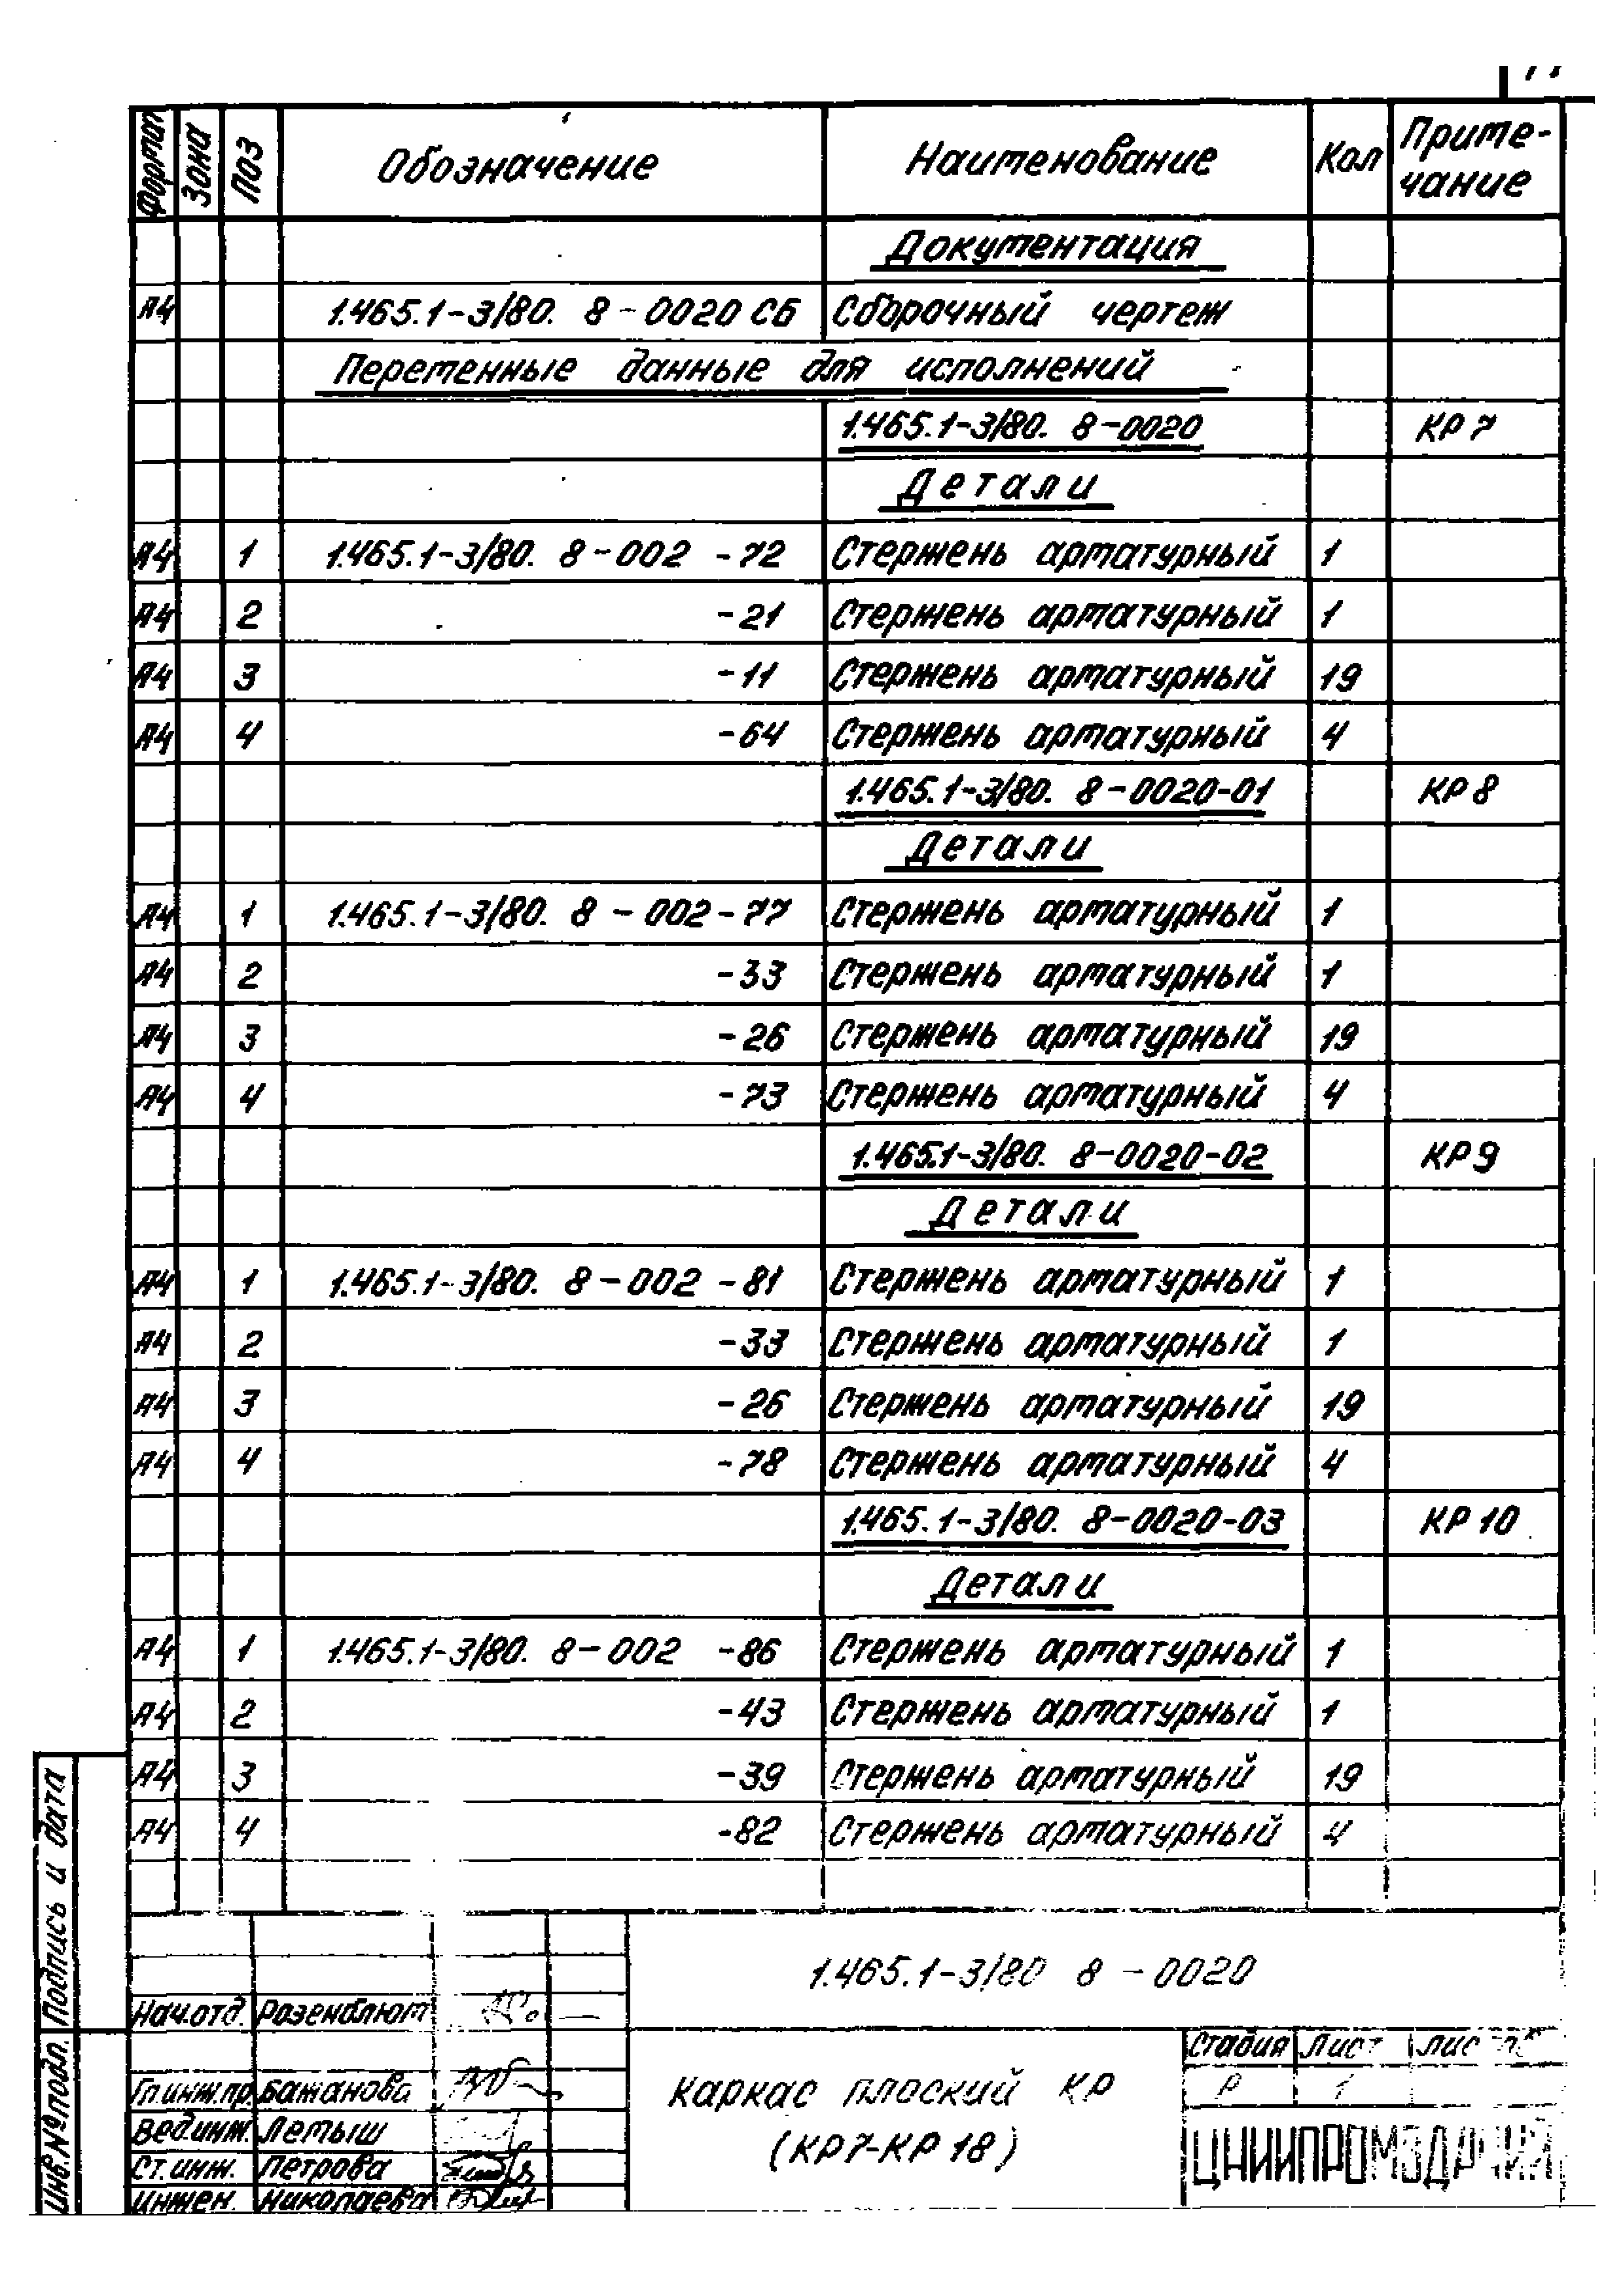 Формат Зона Поз Обозначение Наименование Кол Примечание
Документация
А4 1.465.1-3/80. 8-0020 СБ Сборочный чертеж
Переменные данные для исполнений
1.465.1-3/80. 8-0020 КР 7
Детали
А4 1 1.465.1-3/80. 8-002 -72 Стержень арматурный 1
А4 2 -21 Стержень арматурный 1
А4 3 -11 Стержень арматурный 19
А4 4 -64 Стержень арматурный 4
1.465.1-3/80. 8-0020-01 КР 8
Детали
А4 1 1.465.1-3/80. 8-002-77 Стержень арматурный 1
А4 2 -33 Стержень арматурный 1
А4 3 -26 Стержень арматурный 19
А4 4 -73 Стержень арматурный 4
1.465.1-3/80. 8-0020-02 КР 9
Детали
А4 1 1.465.1-3/80. 8-002 -81 Стержень арматурный 1
А4 2 -33 Стержень арматурный 1
А4 3 -26 Стержень арматурный 19
А4 4 -78 Стержень арматурный 4
1.465.1-3/80. 8-0020-03 КР 10
Детали
А4 1 1.465.1-3/80. 8-002 -86 Стержень арматурный 1
А4 2 -43 Стержень арматурный 1
А4 3 -39 Стержень арматурный 19
А4 4 -82 Стержень арматурный 4
Подпись и дата
Инв.№ подл.
1.465.1-3/80 8-0020
Нач.отд. Розенблюм
Гл.инж.пр. Бажанова
Вед.инж. Лемыш
Ст.инж. Петрова
Инжен. Николаева
Каркас плоский КР
(КР7-КР 18)
Стадия Лист
Р 1
ЦНИИПРОМЗДАНИЙ